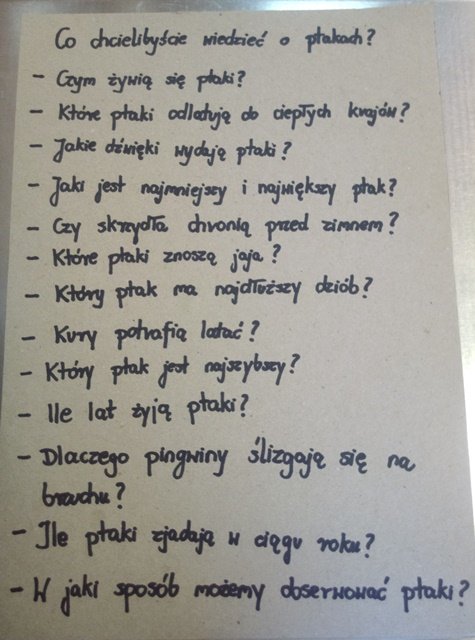 Co chcielibyście wiedzieć o ptakach?
- Czym żywią się ptaki?
- Które ptaki odlatują do ciepłych krajów?
- Jakie dźwięki wydają ptaki?
- Jaki jest najmniejszy i największy ptak?
- Czy skrzydła chronią przed zimnem?
- Które ptaki znoszą jaja?
- Który ptak ma najdłuższy dziób?
- Kury potrafią latać?
- Który ptak jest najszybszy?
- Ile lat żyją ptaki?
- Dlaczego pingwiny ślizgają się na
brzuchu?
- Ile ptaki zjadają w ciągu roku?
- W jaki sposób możemy obserwować ptaki?